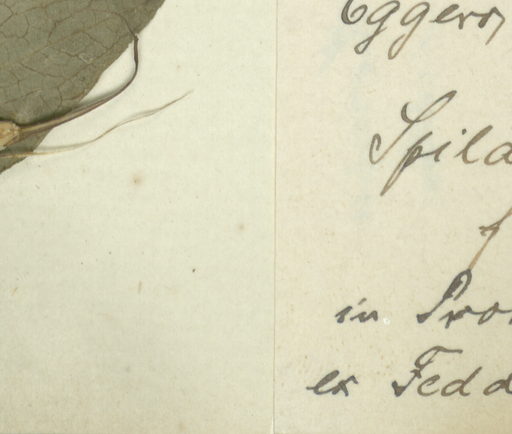 Eggers,
Spila
f
in Pro
ex Fedd